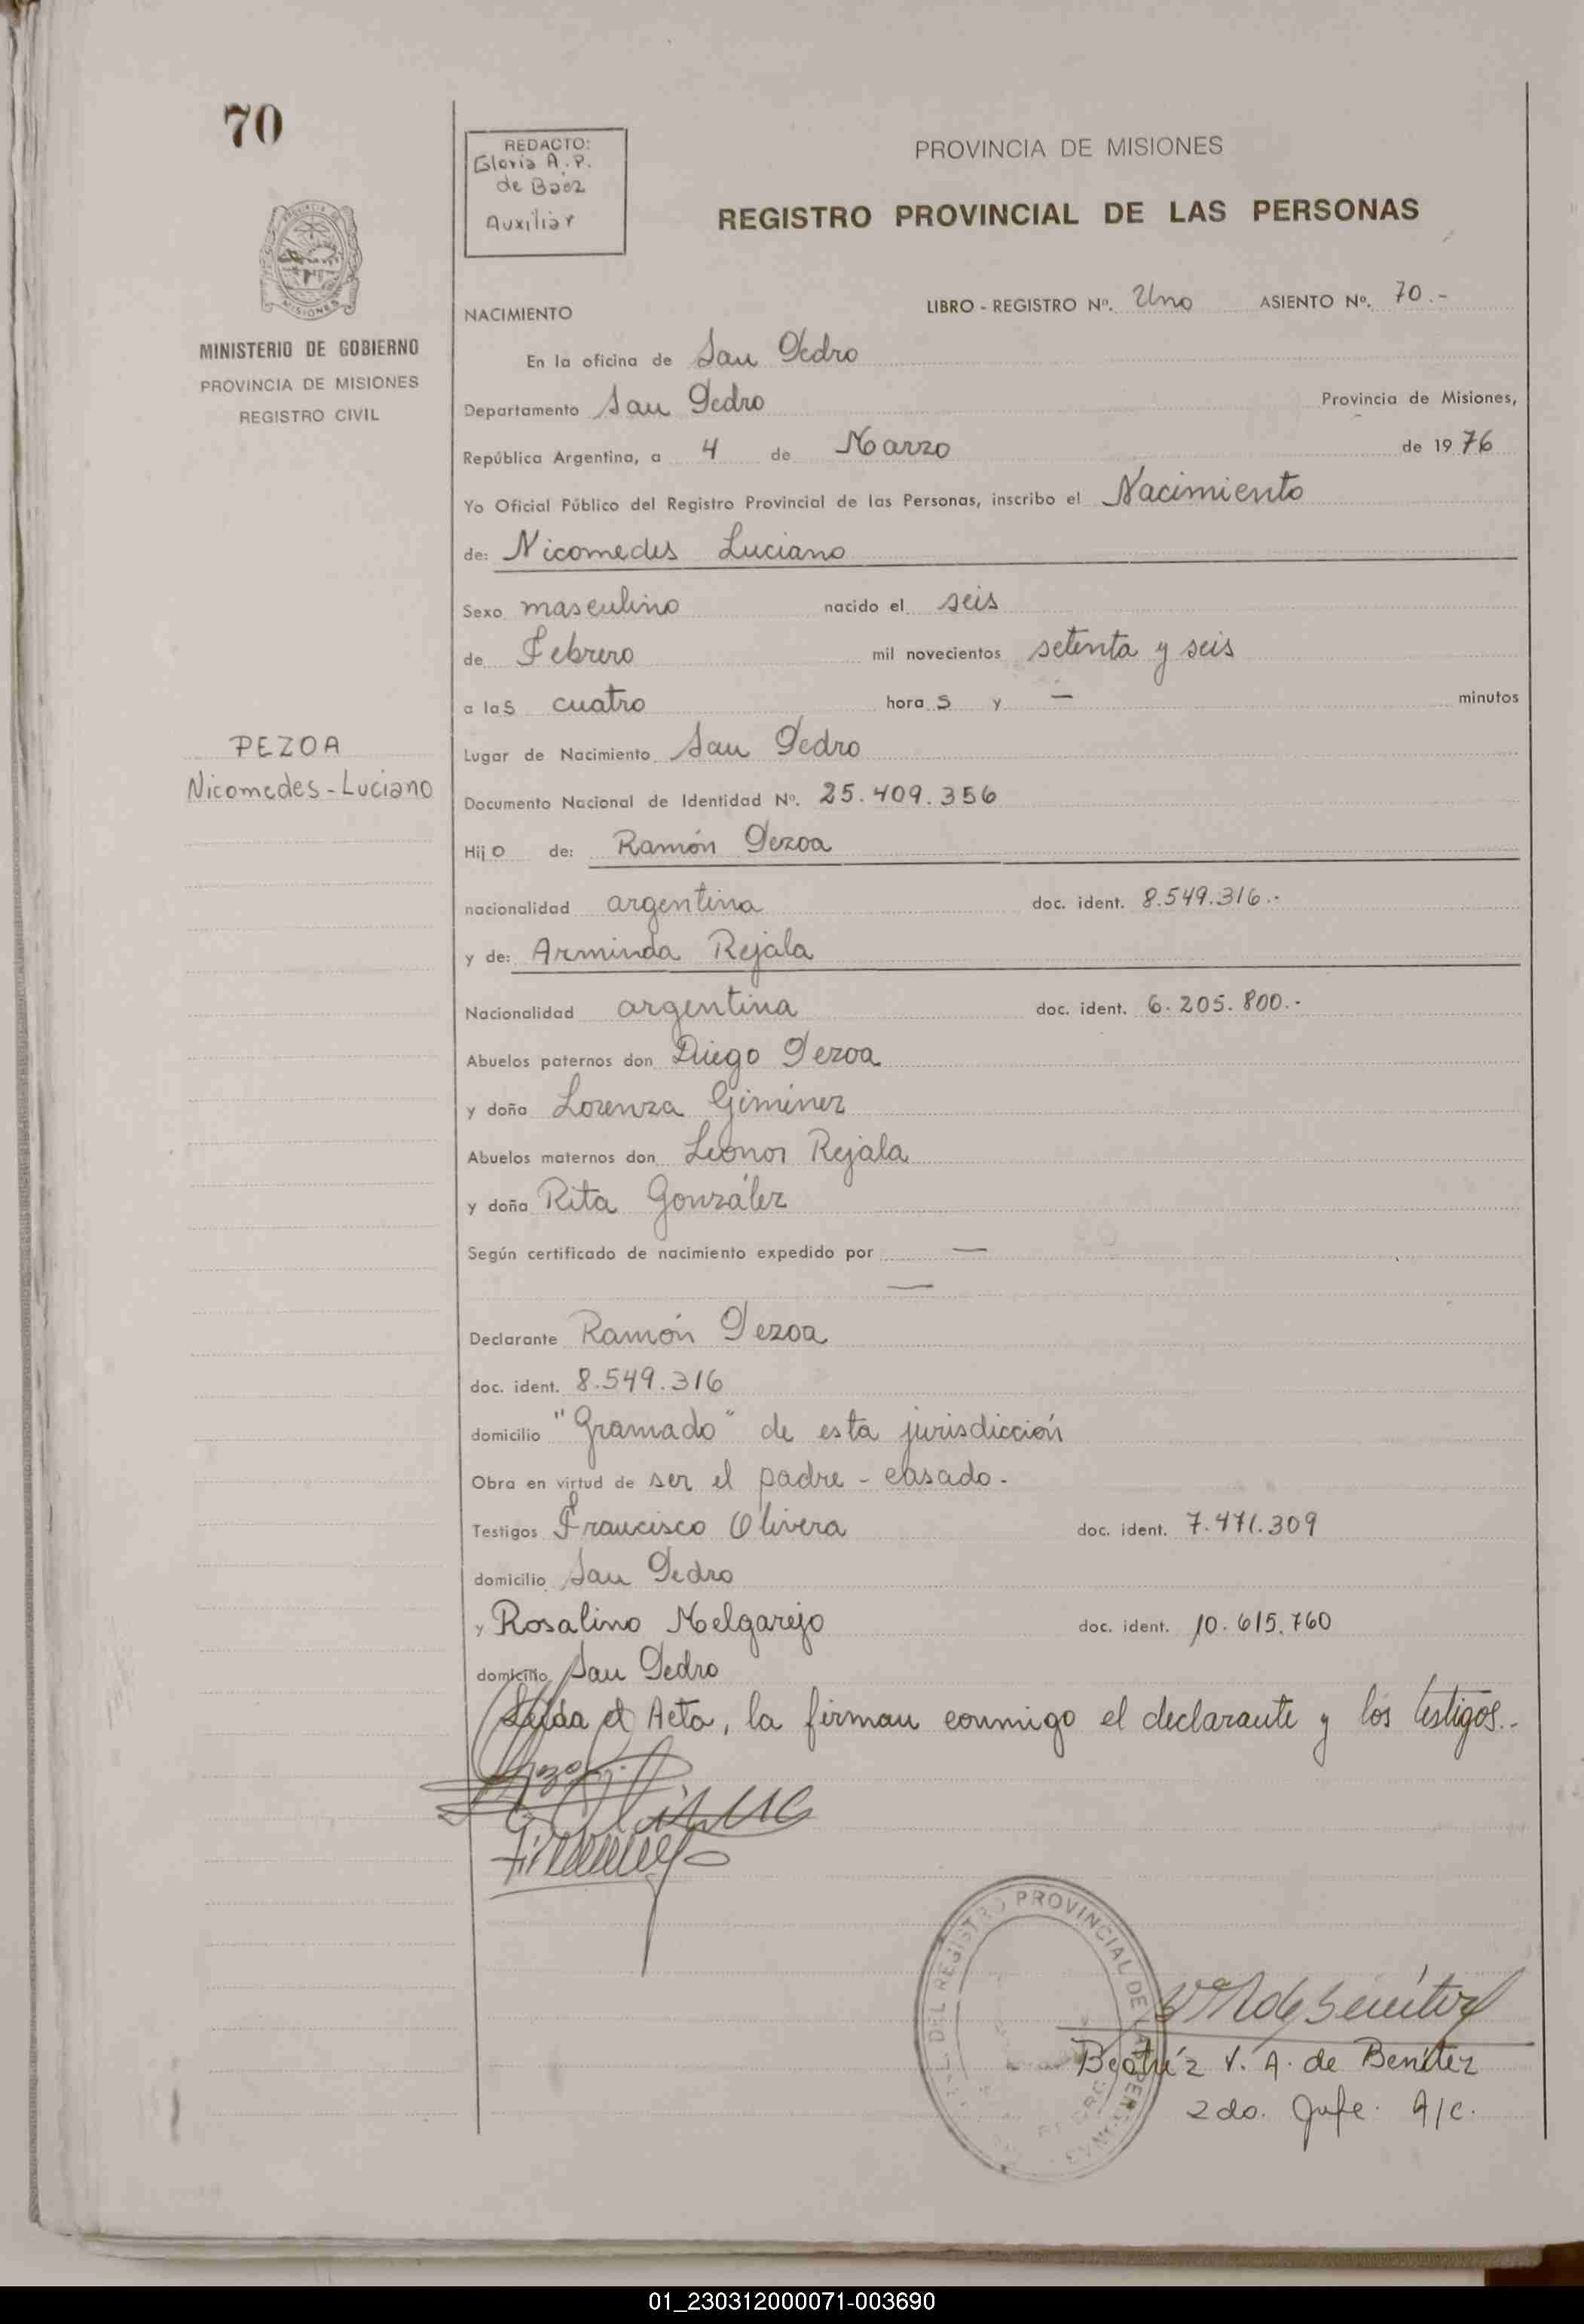 70
REDACTO:
Gloria A. P.
de Baez
Auxiliar
PROVINCIA DE MISIONES
REGISTRO PROVINCIAL DE LAS PERSONAS
MINISTERIO DE GOBIERNO
PROVINCIA DE MISIONES
REGISTRO CIVIL
NACIMIENTO LIBRO - REGISTRO Nº. Uno ASIENTO Nº. 70.-
En la oficina de San Pedro
Departamento San Pedro Provincia de Misiones,
República Argentina, a 4 de Marzo de 1976
Yo Oficial Público del Registro Provincial de las Personas, inscribo el Nacimiento
de: Nicomedes Luciano
Sexo masculino nacido el seis
de Febrero mil novecientos setenta y seis
a las cuatro horas y — minutos
PEZOA
Nicomedes - Luciano
Lugar de Nacimiento San Pedro
Documento Nacional de Identidad Nº. 25.409.356
Hijo de: Ramón Pezoa
nacionalidad argentina doc. ident. 8.549.316.-
y de: Arminda Rejala
Nacionalidad argentina doc. ident. 6.205.800.-
Abuelos paternos don Diego Pezoa
y doña Lorenza Giménez
Abuelos maternos don Leonor Rejala
y doña Rita González
Según certificado de nacimiento expedido por —
—
Declarante Ramón Pezoa
doc. ident. 8.549.316
domicilio "Gramado" de esta jurisdicción
Obra en virtud de ser el padre - casado.
Testigos Francisco Olivera doc. ident. 7.471.309
domicilio San Pedro
y Rosalino Melgarejo doc. ident. 10.615.760
domicilio San Pedro
Leída el Acta, la firman conmigo el declarante y los testigos.-
DEL REGISTRO PROVINCIAL DE LAS PERSONAS
Beatríz V. A. de Benítez
2do. Jefe. A/C.
01_230312000071-003690